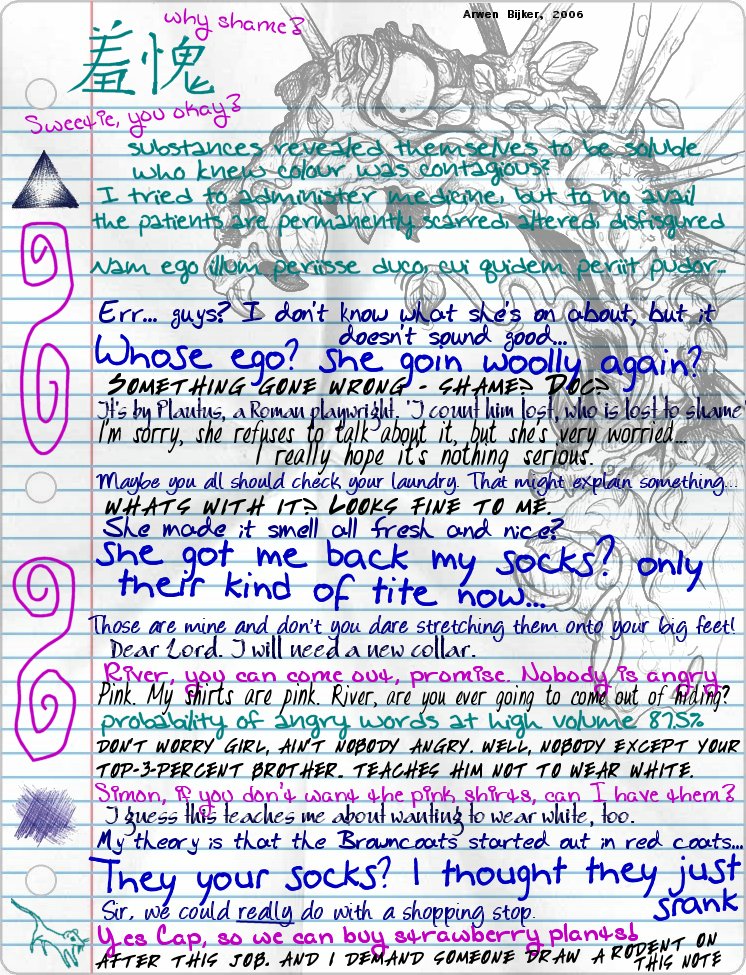 Arwen Bijker, 2006
why shame?
羞愧
Sweetie, you okay?
substances revealed themselves to be soluble
who knew colour was contagious?
I tried to administer medicine, but to no avail
the patients are permanently scarred, altered, disfigured
Nam ego illum periisse duco, cui quidem periit pudor...
Err... guys? I don't know what she's on about, but it
doesn't sound good...
Whose ego? She goin woolly again?
SOMETHING GONE WRONG - SHAME? DOC?
It's by Plautus, a Roman playwright. 'I count him lost, who is lost to shame'
I'm sorry, she refuses to talk about it, but she's very worried...
I really hope it's nothing serious.
Maybe you all should check your laundry. That might explain something...
WHATS WITH IT? LOOKS FINE TO ME.
She made it smell all fresh and nice?
She got me back my socks? only
their kind of tite now...
Those are mine and don't you dare stretching them onto your big feet!
Dear Lord. I will need a new collar.
River, you can come out, promise. Nobody is angry
Pink. My shirts are pink. River, are you ever going to come out of hiding?
probability of angry words at high volume 87.5%
DON'T WORRY GIRL, AIN'T NOBODY ANGRY. WELL, NOBODY EXCEPT YOUR
TOP-3-PERCENT BROTHER. TEACHES HIM NOT TO WEAR WHITE.
Simon, if you don't want the pink shirts, can I have them?
I guess this teaches me about wanting to wear white, too.
My theory is that the Browncoats started out in red coats...
They your socks? I thought they just
srank
Sir, we could really do with a shopping stop.
Yes Cap, so we can buy strawberry plants!
AFTER THIS JOB. AND I DEMAND SOMEONE DRAW A RODENT ON
THIS NOTE